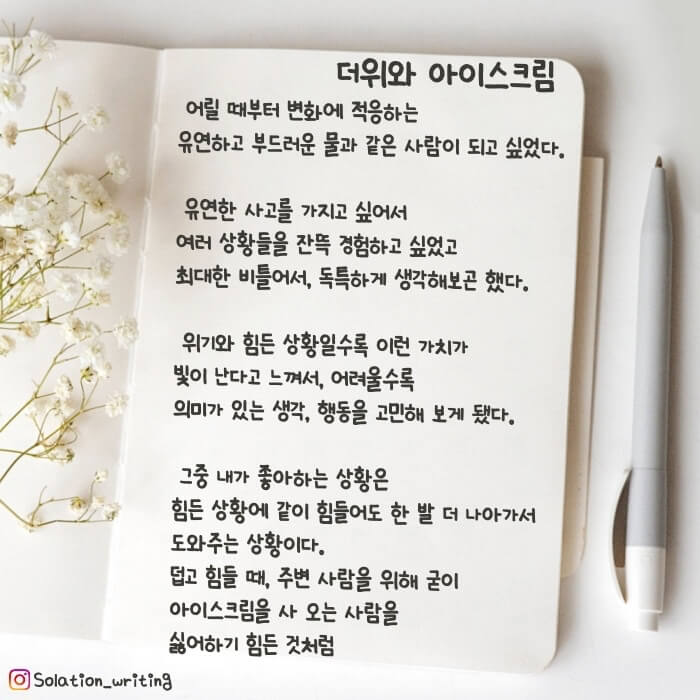 더위와 아이스크림
어릴 때부터 변화에 적응하는
유연하고 부드러운 물과 같은 사람이 되고 싶었다.
유연한 사고를 가지고 싶어서
여러 상황들을 잔뜩 경험하고 싶었고
최대한 비틀어서, 독특하게 생각해보곤 했다.
위기와 힘든 상황일수록 이런 가치가
빛이 난다고 느껴서, 어려울수록
의미가 있는 생각, 행동을 고민해 보게 됐다.
그중 내가 좋아하는 상황은
힘든 상황에 같이 힘들어도 한 발 더 나아가서
도와주는 상황이다.
덥고 힘들 때, 주변 사람을 위해 굳이
아이스크림을 사 오는 사람을
싫어하기 힘든 것처럼
Solation_writing